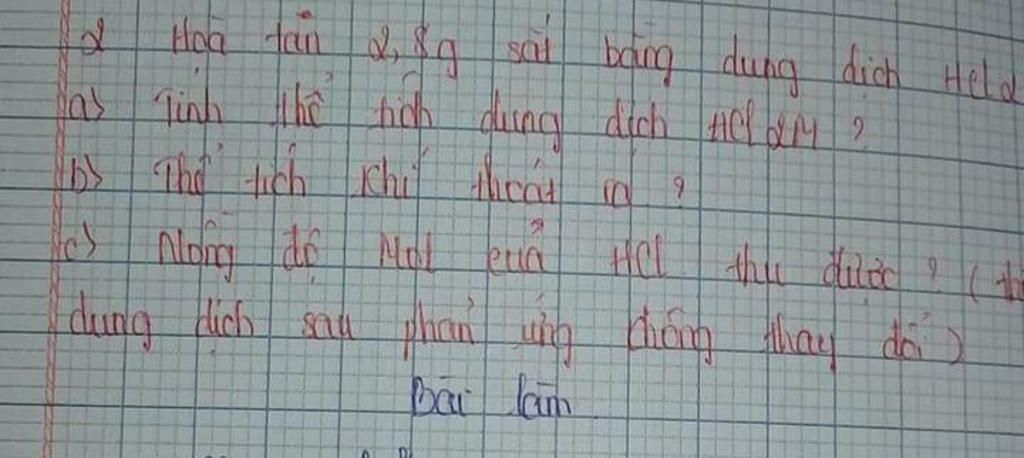 2 Hoà tan 2,8g sắt bằng dung dịch HCl 2
a) Tính thể tích dung dịch HCl 2M ?
b) Thể tích khí thoát ra ?
c) Nồng độ Mol của HCl thu được ? (
dung dịch sau phản ứng không thay đổi)
Bài làm